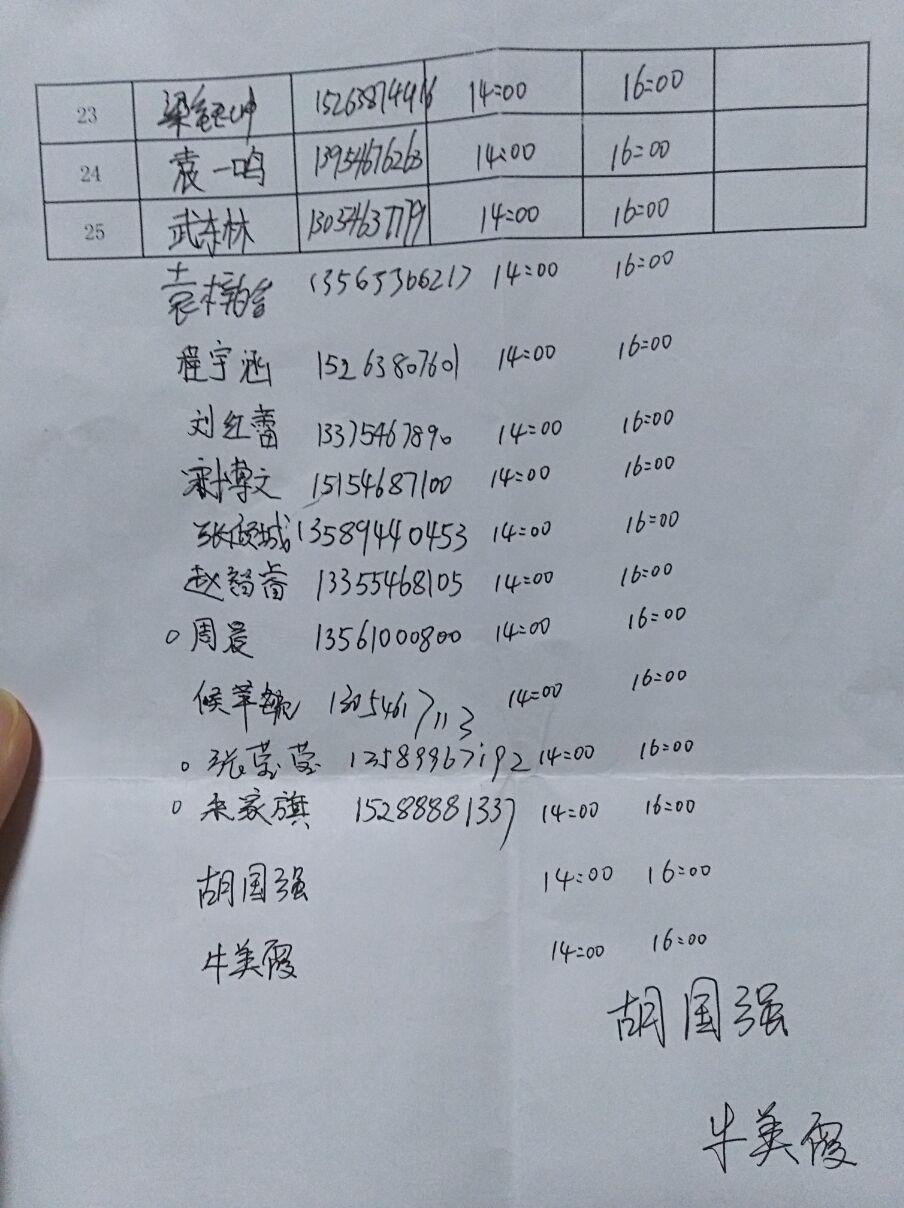 23 梁 15263874416 14:00 16:00
24 袁一鸣 13954676263 14:00 16:00
25 武东林 13054637779 14:00 16:00
袁梓铂 13563366217 14:00 16:00
程宇涵 15263807601 14:00 16:00
刘红蕾 13375467890 14:00 16:00
谢博文 15154687100 14:00 16:00
张倾城 13589440453 14:00 16:00
赵智睿 13355468105 14:00 16:00
周晨 13561000800 14:00 16:00
候苹 13054617113 14:00 16:00
张莹莹 13589967192 14:00 16:00
宋家旗 15288881337 14:00 16:00
胡国强 14:00 16:00
牛美霞 14:00 16:00
胡国强
牛美霞